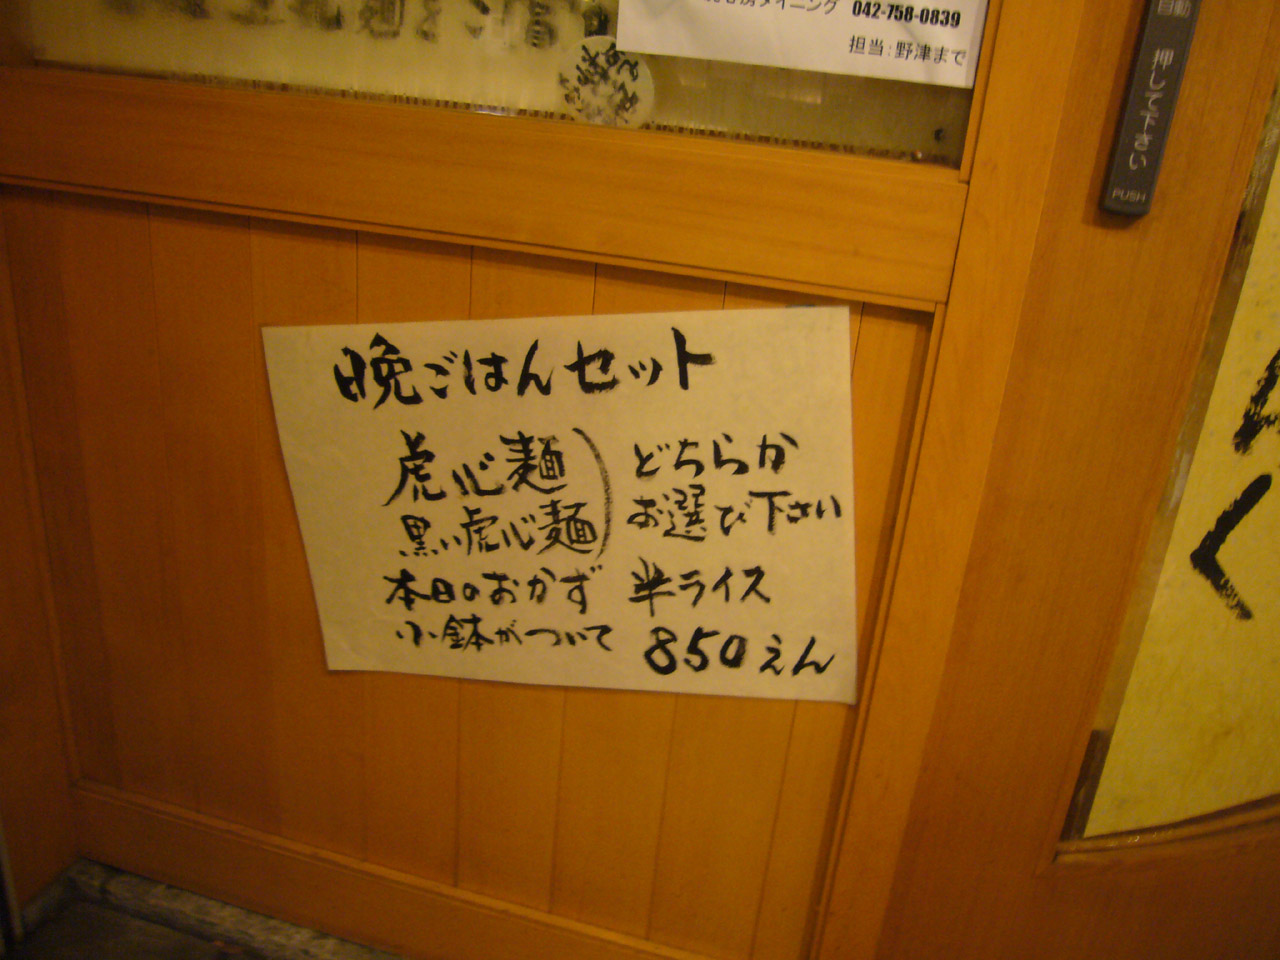 ダイニング 042-758-0839
担当：野津まで
自動
押して下さい
PUSH
晩ごはんセット
虎心麺
黒い虎心麺
どちらか
お選び下さい
本日のおかず 半ライス
小鉢がついて 850えん
く